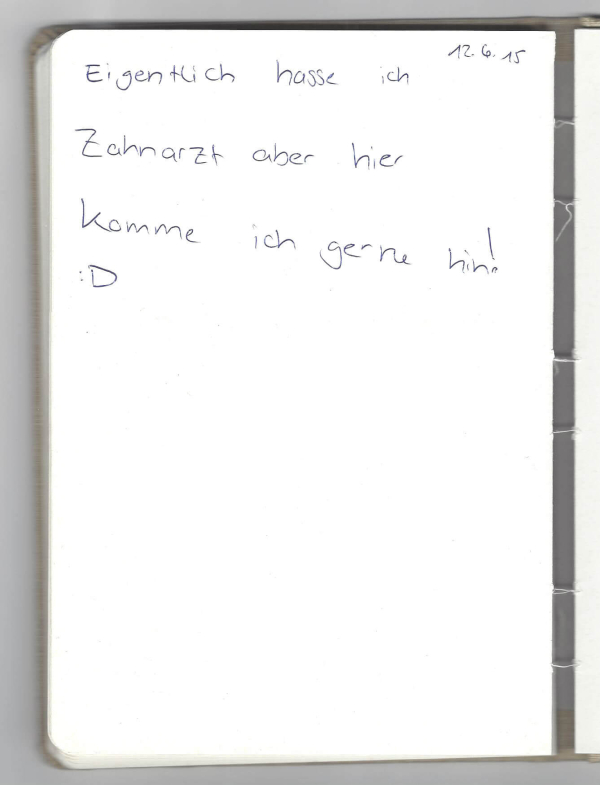 12.6.15
Eigentlich hasse ich
Zahnarzt aber hier
komme ich gerne hin!
:D